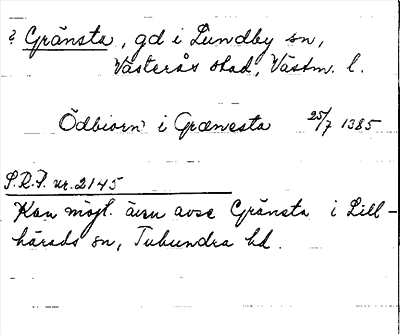 ? Gränsta, gd i Lundby sn,
Västerås stad, Västm. l.
Ödbiorn i Grænesta 25/7 1385
S.R.P. nr. 2145
Kan möjl. även avse Gränsta i Lill-
härads sn, Tuhundra hd.